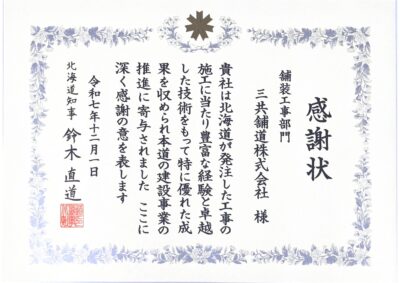 感謝状
舗装工事部門
三共舗道株式会社 様
貴社は北海道が発注した工事の
施工に当たり豊富な経験と卓越
した技術をもって特に優れた成
果を収められ本道の建設事業の
推進に寄与されました ここに
深く感謝の意を表します
令和七年十二月一日
北海道知事 鈴木直道